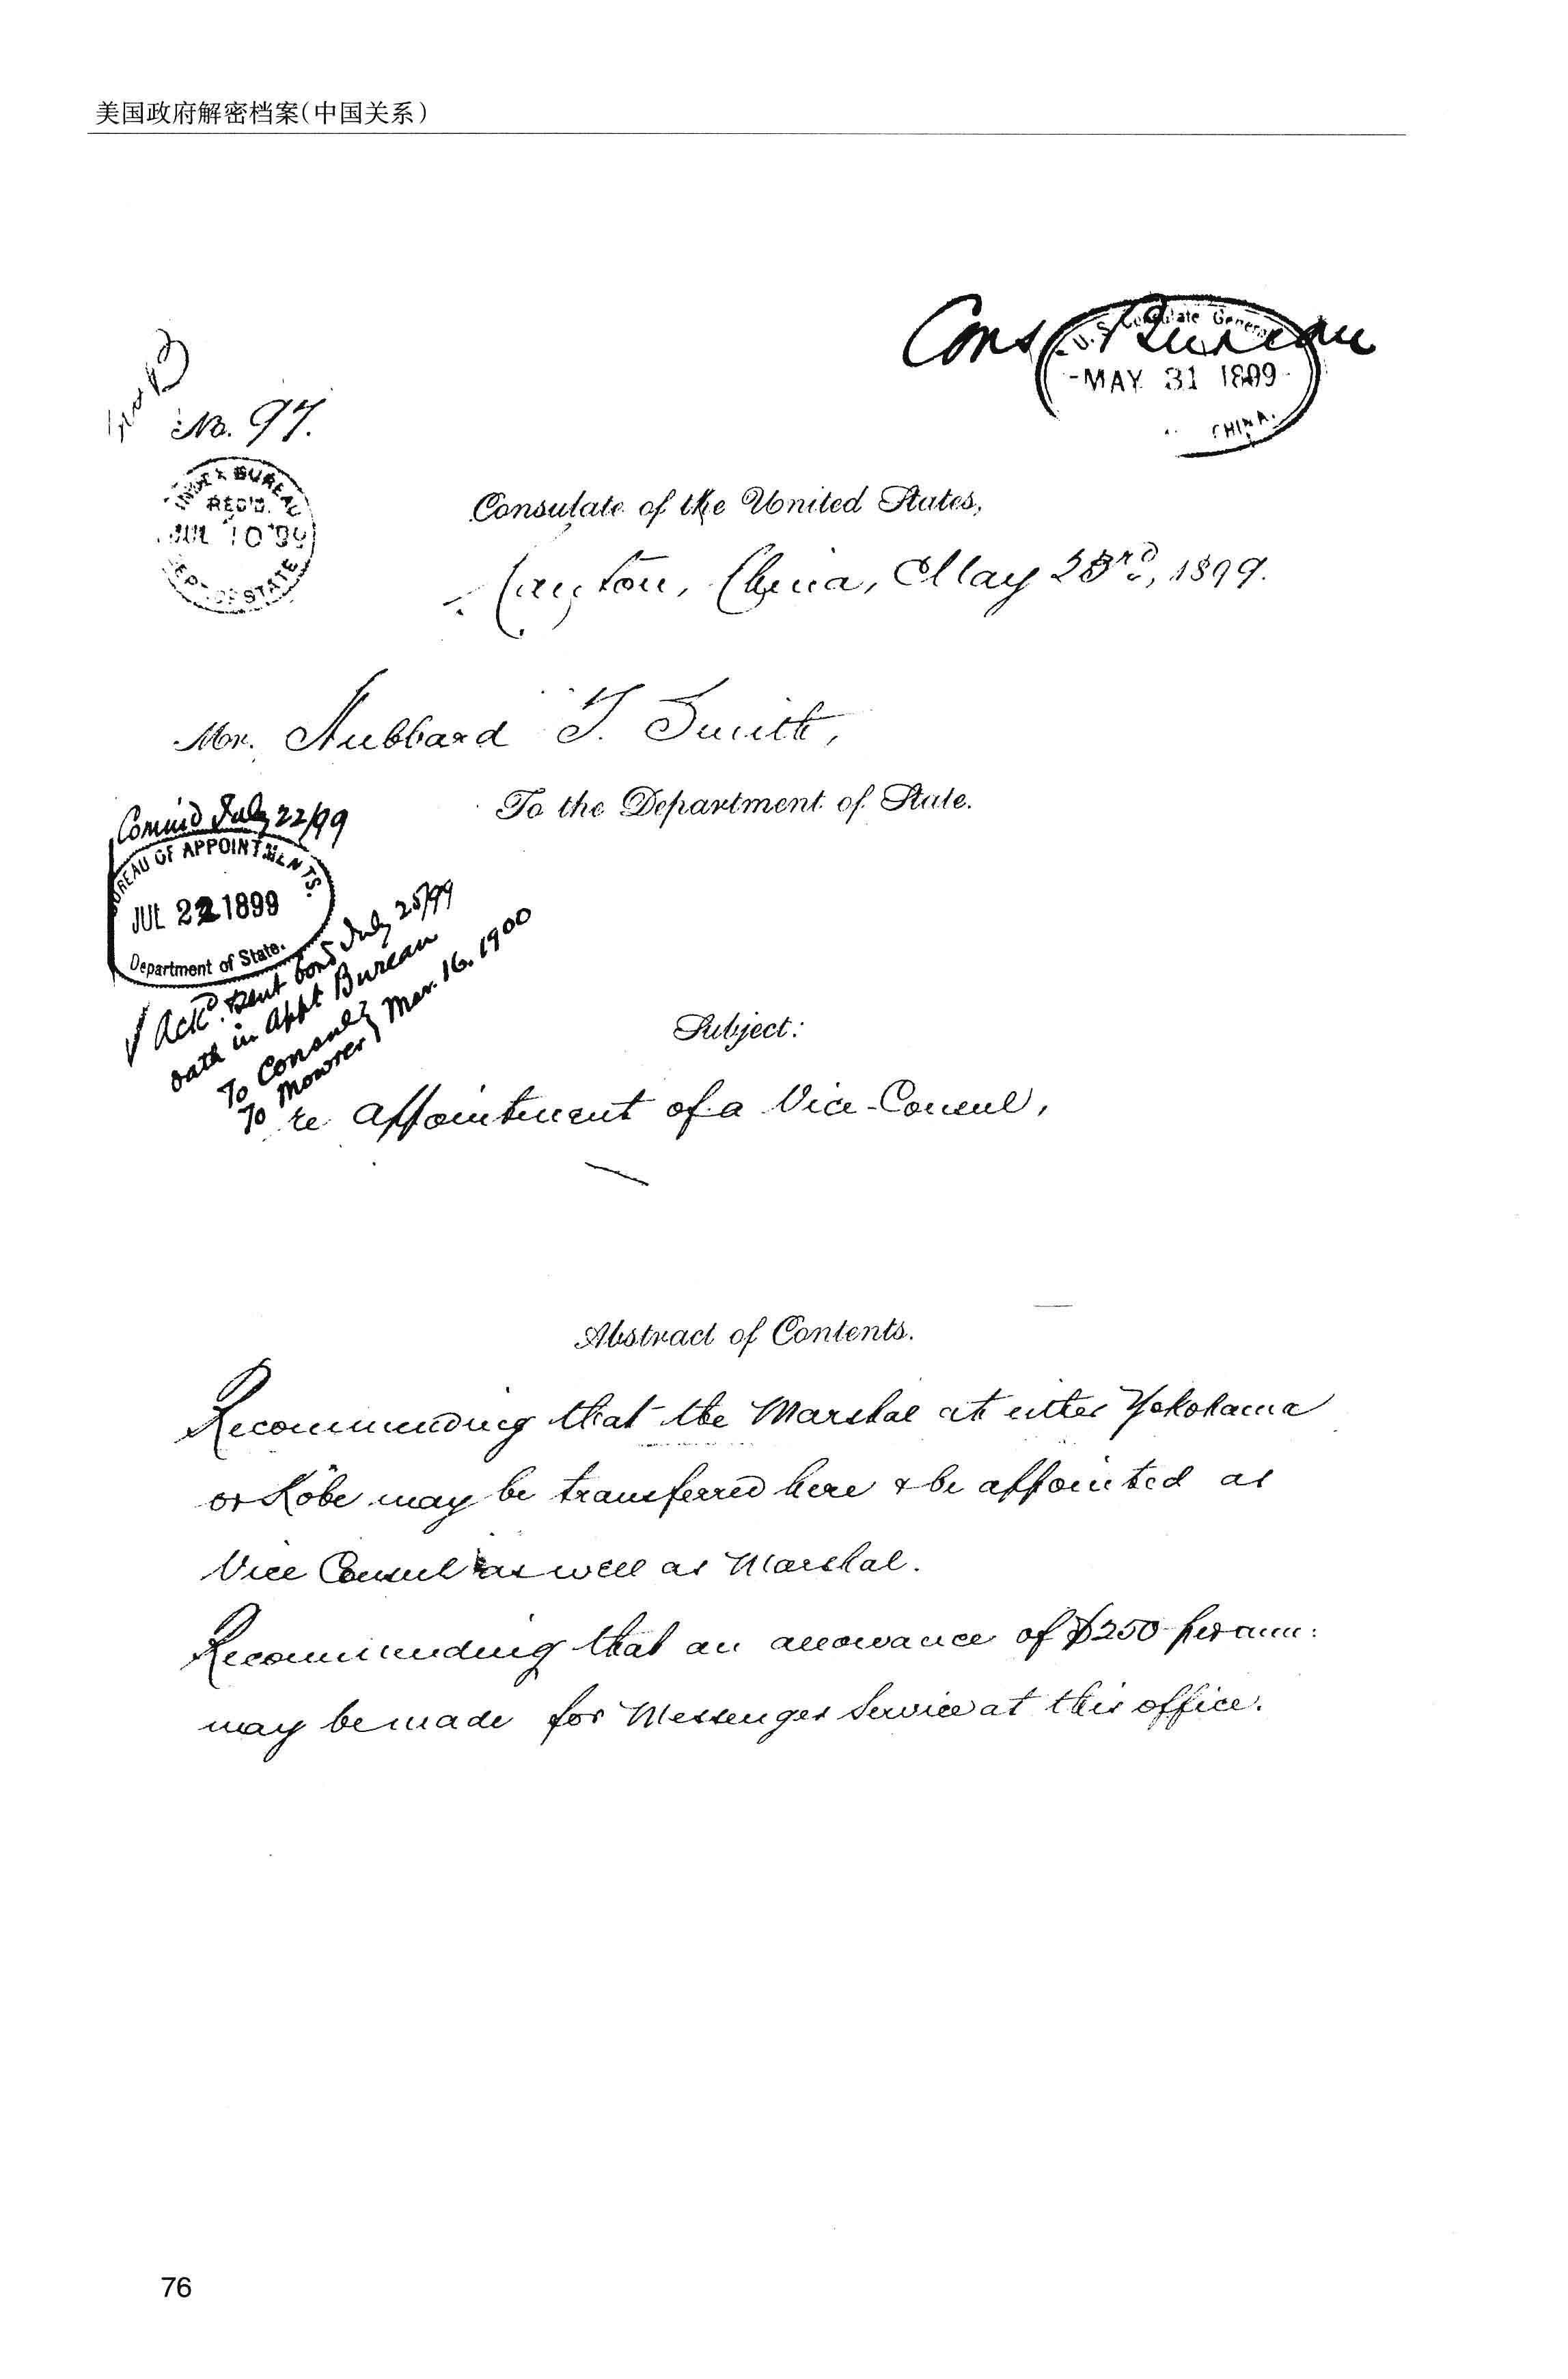 美国政府解密档案(中国关系)
Cons Bureau
U.S. Consulate General
-MAY 31 1899-
CHINA.
No. 97.
INDEX BUREAU
REC'D.
JUL 10 '99
DEPT. OF STATE
Consulate of the United States,
Canton, China, May 23rd, 1899.
Mr. Hubbard T. Smith,
To the Department of State.
Comm'd July 22/99
BUREAU OF APPOINTMENTS.
JUL 22 1899
Department of State.
Ack'd. sent bond July 25/99
oath in Appt Bureau
To Consul
To Mowrer Mar. 16. 1900
Subject:
re appointment of a Vice-Consul,
Abstract of Contents.
Recommending that the Marshal at either Yokohama
or Kobe may be transferred here & be appointed as
Vice Consul as well as Marshal.
Recommending that an allowance of $250 per ann:
may be made for Messenger Service at this office.
76